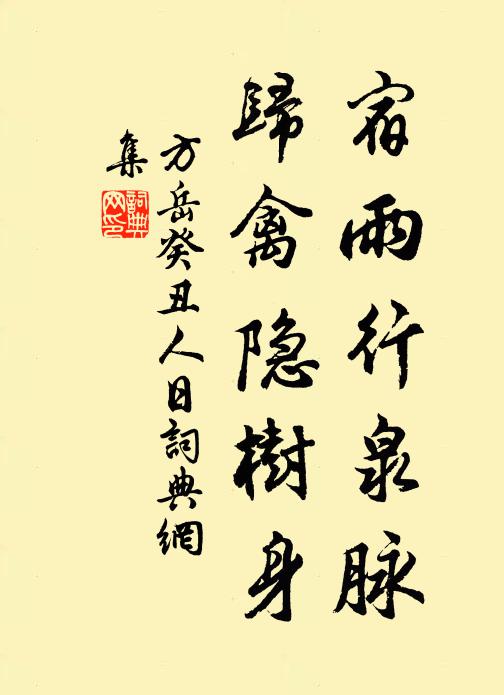 宿雨行泉脉
歸禽隐樹身
方岳癸丑人日詞典網
集
詞典網印